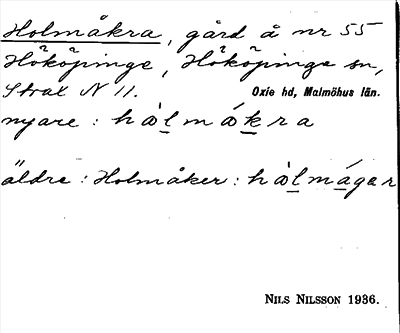 Holmåkra, gård å nr 55
Hököpinge, Hököpinge sn,
Strax N 11. Oxie hd, Malmöhus län.
nyare : hòl̲mák̲ra
äldre : Holmåker : hòl̲má̲gar
NILS NILSSON 1936.